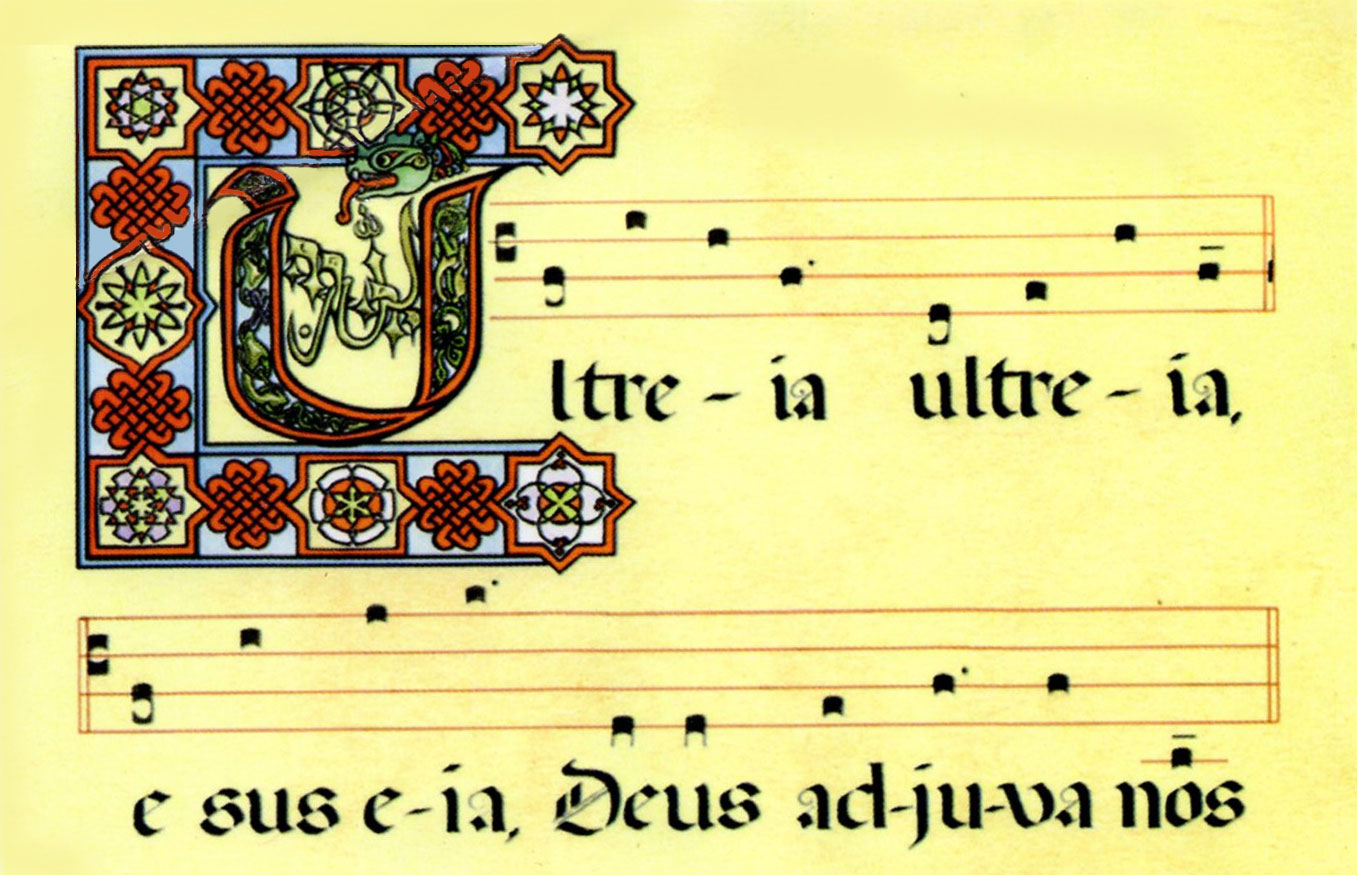 Ultre - ia ultre - ia,
e sus e-ia, Deus ad-ju-va nos